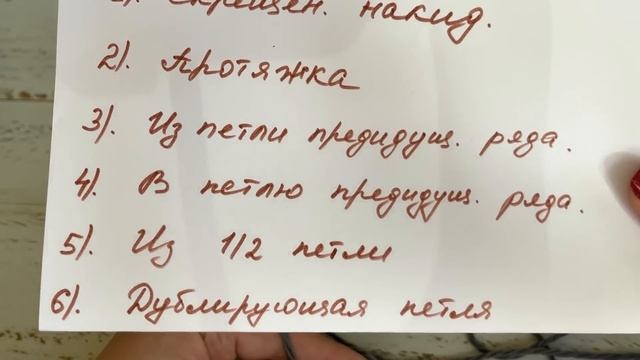 1). Скрещен. накид.
2). Протяжка
3). Из петли предидущ. ряда.
4). В петлю предидущ. ряда.
5). Из 1/2 петли
6). Дублирующая петля